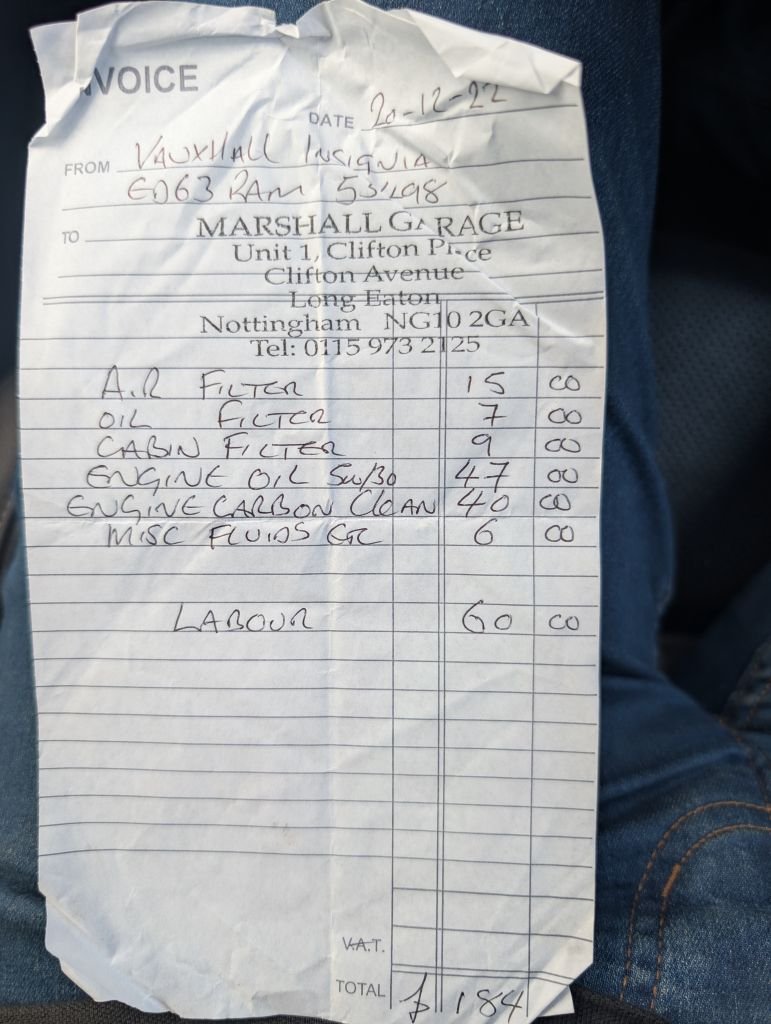 NVOICE
DATE 20-12-22
FROM VAUXHALL INSIGNIA
EO63 RAM
TO
MARSHALL GARAGE
Unit 1, Clifton Place
Clifton Avenue
Long Eaton
Nottingham NG10 2GA
Tel: 0115 973 2125
AIR FILTER 15 00
OIL FILTER 7 00
CABIN FILTER 9 00
ENGINE OIL 5W/30 47 00
ENGINE CARBON CLEAN 40 00
MISC FLUIDS ETC 6 00
LABOUR 60 00
V.A.T.
TOTAL £ 184